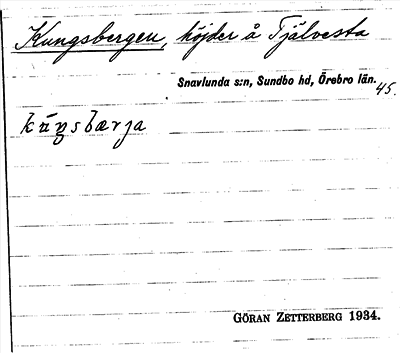 Kungsbergen, höjder å Tjälvesta
Snavlunda s:n, Sundbo hd, Örebro län.
45.
kúŋsbærja
GÖRAN ZETTERBERG 1934.